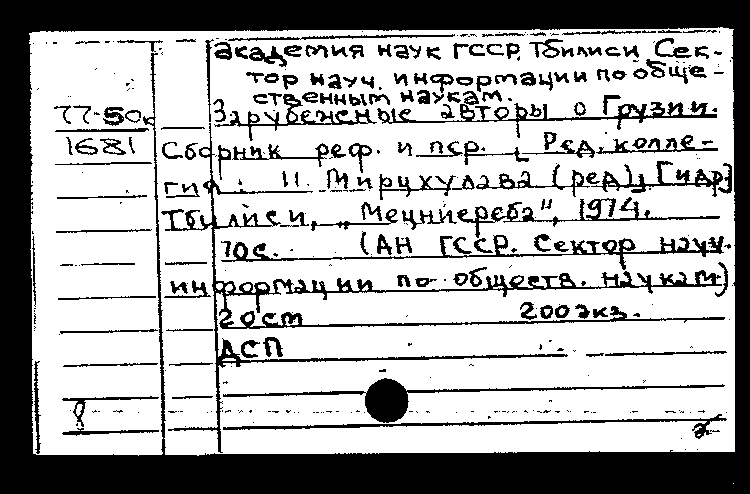 академия наук ГССР, Тбилиси. Сек-
тор науч. информации по обще-
ственным наукам.
77-50к
Зарубежные авторы о Грузии.
1681
Сборник реф. и пер. [Ред. колле-
гия: И. Мирцхулава (ред)] [и др]
Тбилиси, „Мецниереба", 1974.
70с. (АН ГССР. Сектор науч.
информации по обществ. наукам)
20см 200экз.
ДСП
8